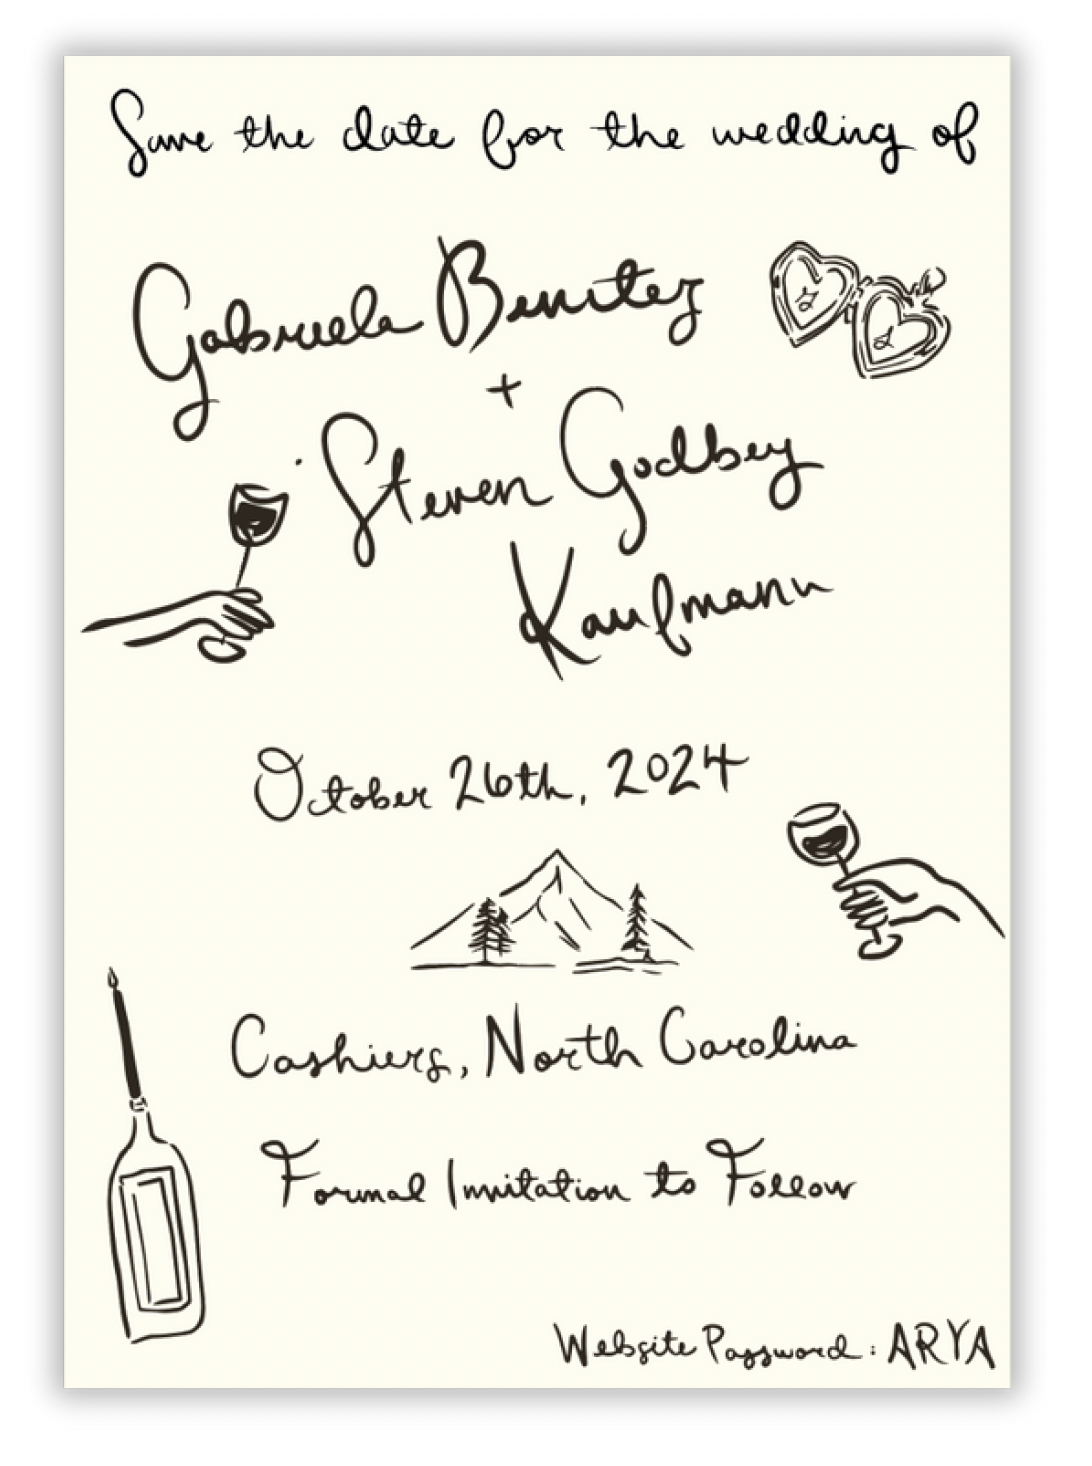 Save the date for the wedding of
Gabriela Benitez
+
Steven Godbey
Kaufmann
October 26th, 2024
Cashiers, North Carolina
Formal Invitation to Follow
Website Password: ARYA